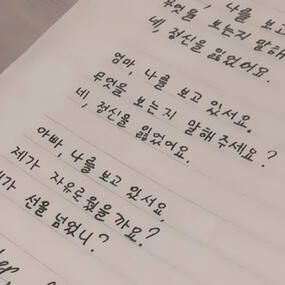 나를 보고
무엇을 보는지 말해
네, 정신을 잃었어요.
엄마, 나를 보고 있서요.
무엇을 보는지 말해 주세요?
네, 정신을 잃었어요.
아빠, 나를 보고 있서요.
제가 자유로웠을까요?
선을 넘었니?